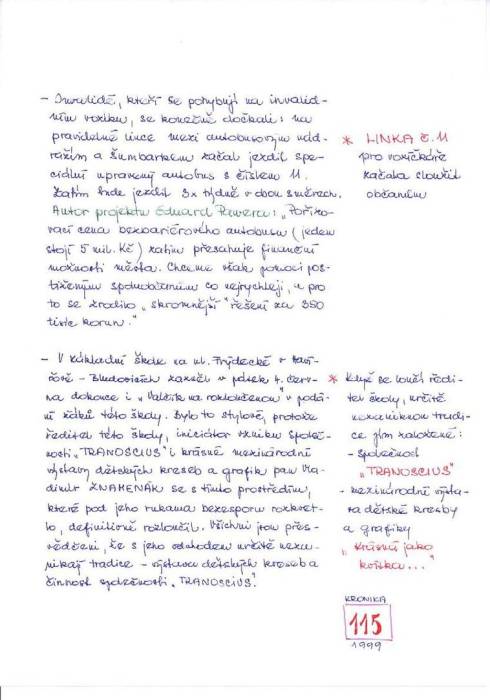 - Invalidé, kteří se pohybují na invalid-
ním vozíku, se konečně dočkali: na
pravidelné lince mezi autobusovým nád-
ražím a Šumbarkem začal jezdit spe-
ciálně upravený autobus s číslem 11.
Zatím bude jezdit 3x týdně v obou směrech.
Autor projektu Eduard Pawera: "Pořizo-
vací cena bezbariérového autobusu (jeden
stojí 5 mil. Kč) zatím přesahuje finanční
možnosti města. Chceme však pomoci pos-
tiženým spoluobčanům co nejrychleji, a pro
to se zrodilo "skromnější" řešení za 350
tisíc korun."
* LINKA č. 11
pro vozíčkáře
začala sloužit
občanům
- V Základní škole na ul. Frýdecké v Haví-
řově - Bludovicích zazněl v pátek 4. červ-
na dokonce i "Valčík na rozloučenou" v podá-
ní žáků této školy. Bylo to stylové, protože
ředitel této školy, iniciátor vzniku společ-
nosti "TRANOSCIUS" i krásné mezinárodní
výstavy dětských kreseb a grafik pan Vla-
dimír ZNAMENÁK se s tímto prostředím,
které pod jeho rukama bezesporu rozkvet-
lo, definitivně rozloučil. Všichni jsou přes-
vědčeni, že s jeho odchodem určitě neza-
nikají tradice - výstava dětských kreseb a
činnost společnosti "TRANOSCIUS".
* Když se loučí ředi-
tel školy, určitě
nezaniknou tradi-
ce jím založené:
- společnost
"TRANOSCIUS"
- mezinárodní výsta-
va dětské kresby
a grafiky
"Krásná jako
kytka..."
KRONIKA
115
1999